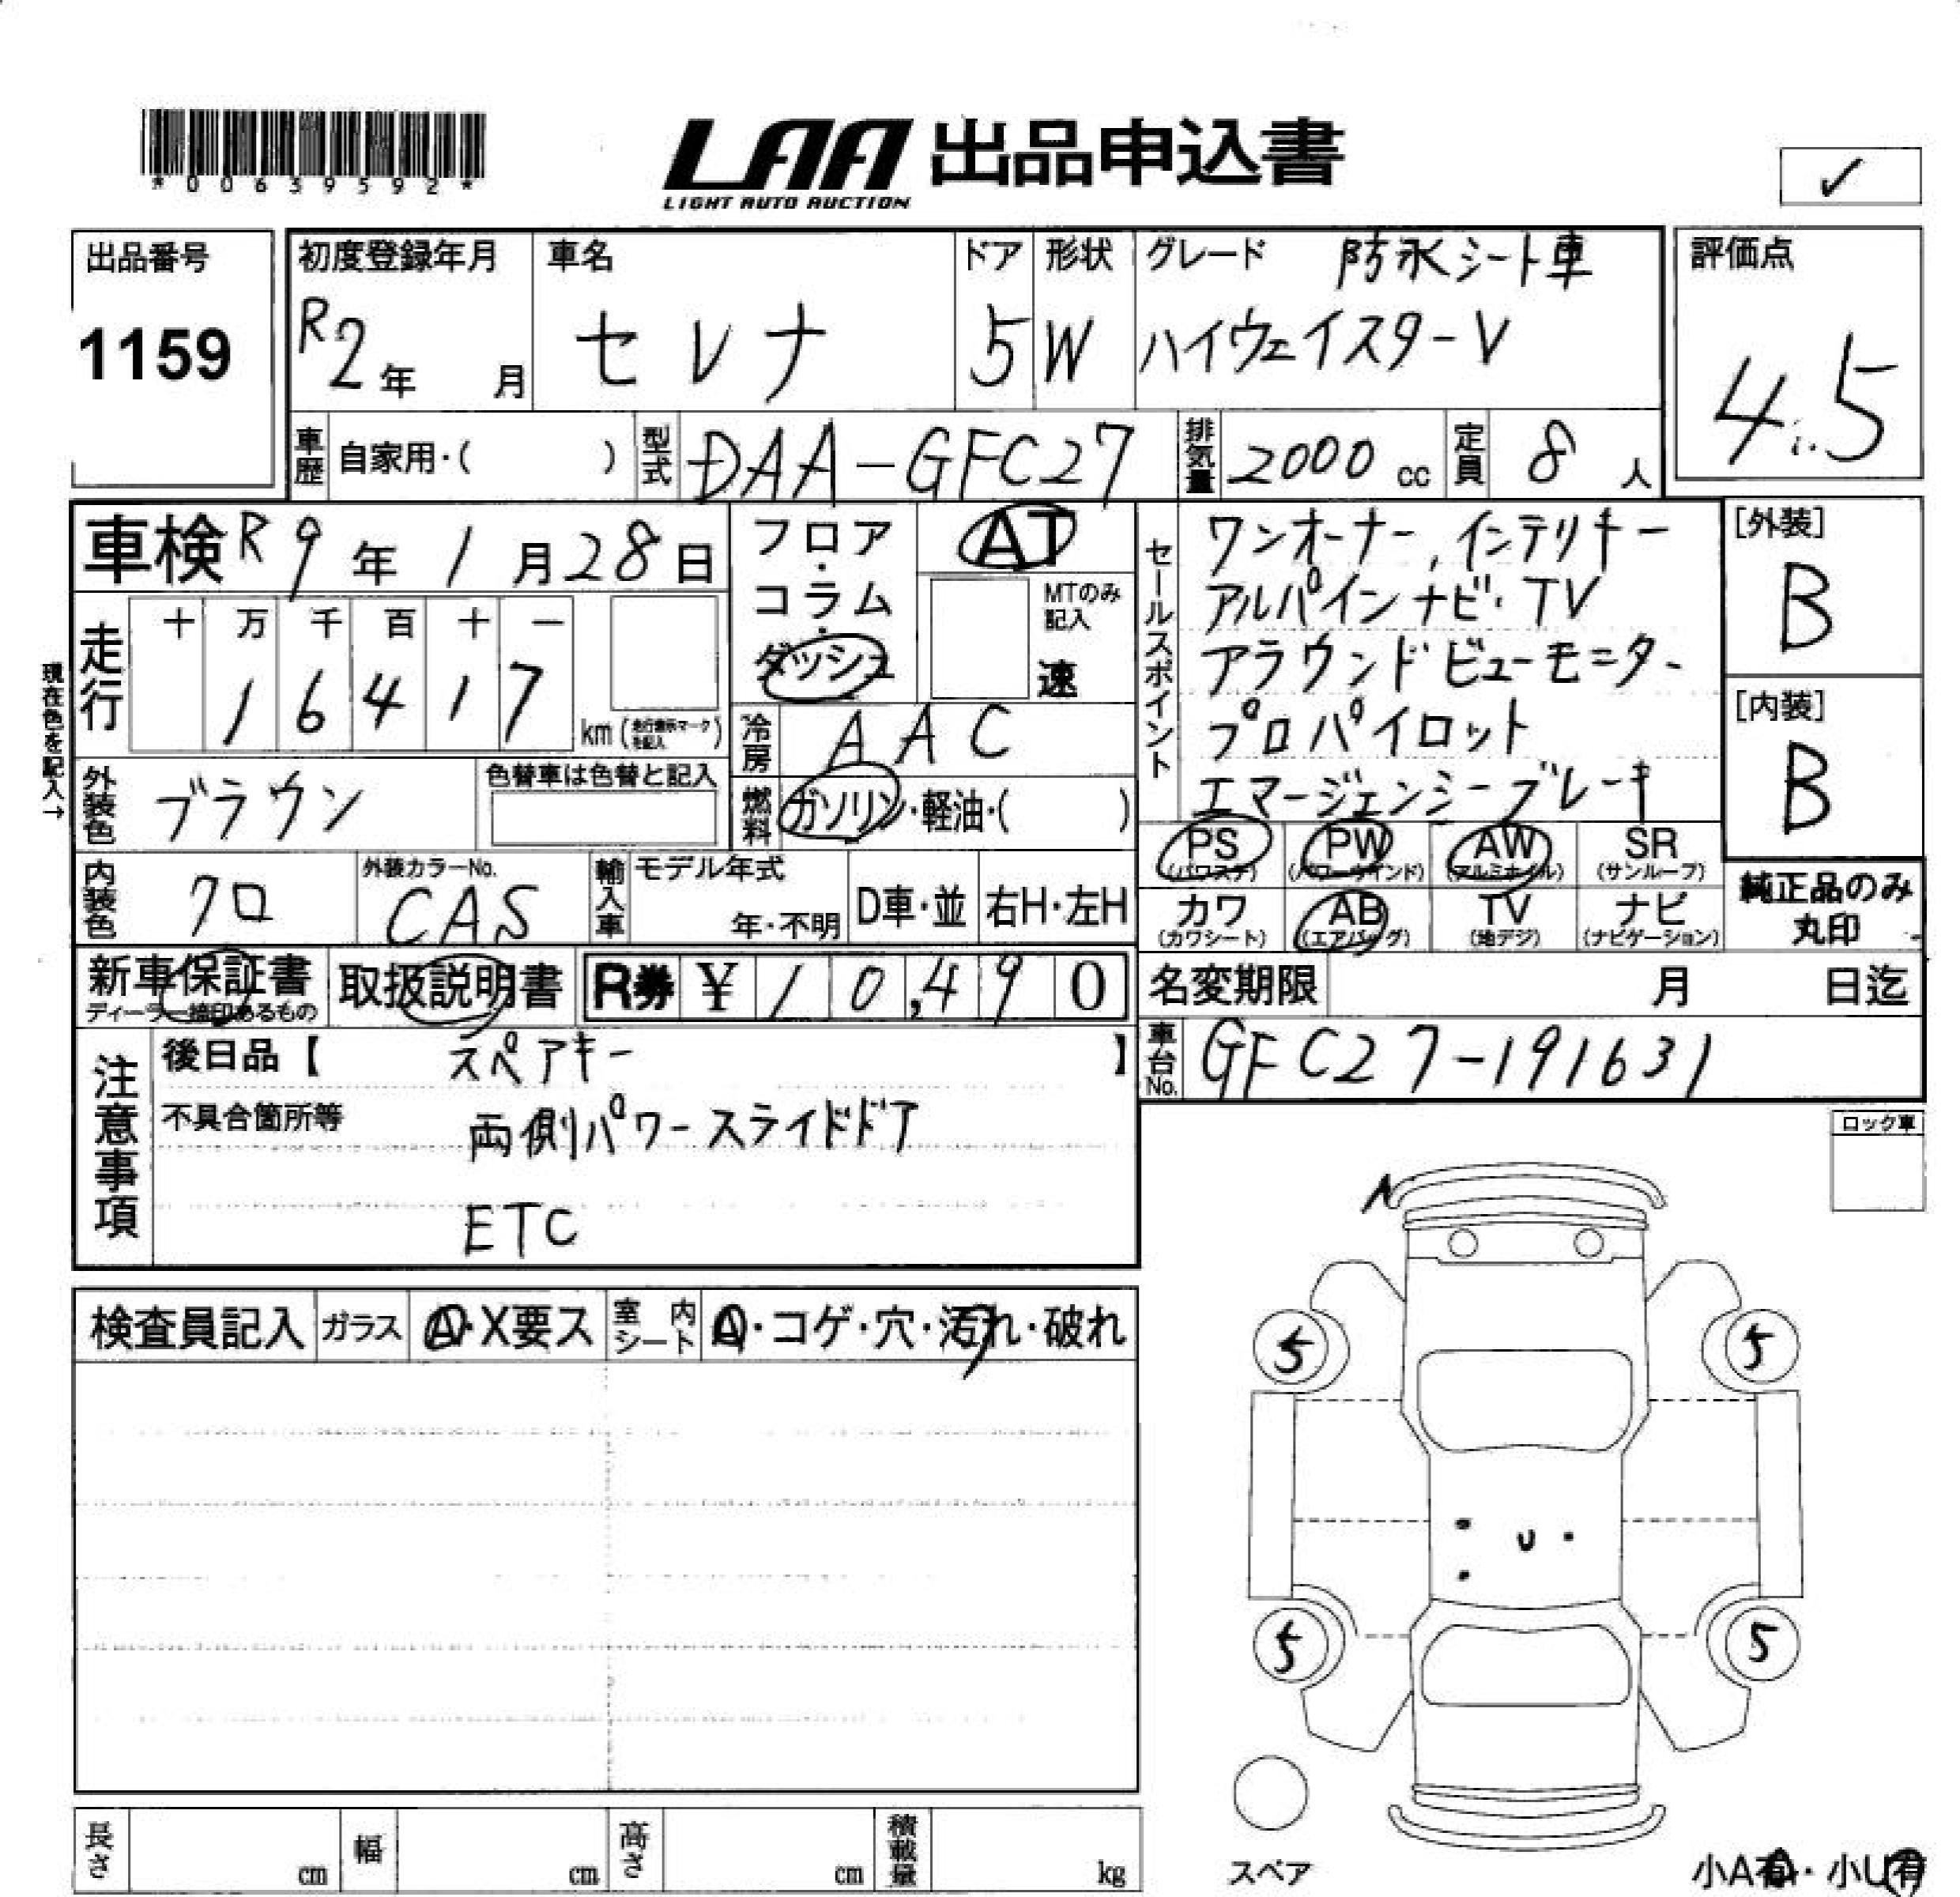 *00639592*
LAA 出品申込書
LIGHT AUTO AUCTION
✓
出品番号
1159
初度登録年月
R2年 月
車名
セレナ
ドア
5
形状
W
グレード 防水シート車
ハイウェイスターV
評価点
4.5
車歴 自家用・( )
型式 DAA-GFC27
排気量 2000 cc
定員 8 人
車検 R9年1月28日
フロア・コラム・ダッシュ
AT
MTのみ記入
速
セールスポイント
ワンオーナー, インテリキー
アルパインナビ・TV
アラウンドビューモニター
プロパイロット
エマージェンシーブレーキ
[外装]
B
[内装]
B
現在色を記入→
走行
十 万 千 百 十 一
1 6 4 1 7
km (走行表示マークを記入)
冷房 AAC
外装色 ブラウン
色替車は色替と記入
燃料 ガソリン・軽油・( )
PS (パワステ)
PW (パワーウインド)
AW (アルミホイル)
SR (サンルーフ)
カワ (カワシート)
AB (エアバッグ)
TV (地デジ)
ナビ (ナビゲーション)
純正品のみ丸印
内装色 クロ
外装カラーNo.
CAS
輸入車
モデル年式
年・不明
D車・並
右H・左H
新車保証書
ディーラー捺印あるもの
取扱説明書
R券 ¥ 10,490
名変期限 月 日迄
車台No. GFC27-191631
注意事項
後日品【 スペアキー 】
不具合箇所等
両側パワースライドドア
ETC
ロック車
検査員記入
ガラス A・X要ス
室内シート A・コゲ・穴・汚れ・破れ
A
5 5
U
5 5
スペア
小A有・小U有
長さ cm
幅 cm
高さ cm
積載量 kg